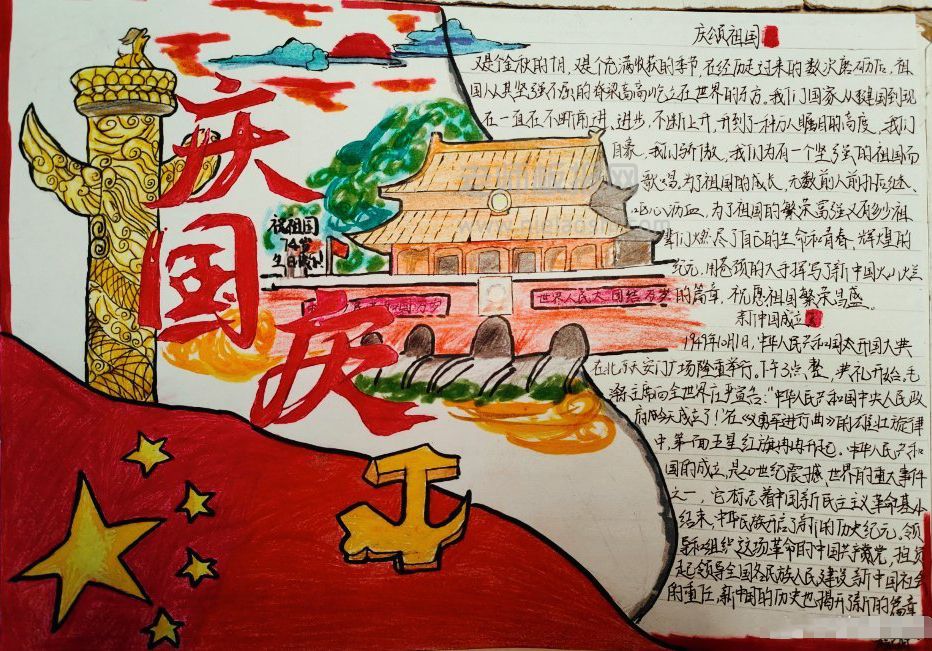 庆国庆
祝祖国
74岁
生日快乐
世界人民大团结万岁
庆颂祖国
又是个金秋的十月,又是个充满收获的季节,在经历走过来的数次磨砺后,祖
国人以其坚强不屈的脊梁高高屹立在世界的东方。我们国家从建国到现
在一直在不断前进,进步,不断上升,升到了一种万人瞩目的高度,我们
自豪,我们骄傲,我们为有一个坚强的祖国而
歌唱。为了祖国的成长,无数前人前扑后继、
呕心沥血,为了祖国的繁荣富强又有多少祖
辈们燃尽了自己的生命和青春,辉煌的
纪元,用苍颈的大手挥写了新中国火火烂
的篇章,祝愿祖国繁荣昌盛。
新中国成立
1949年10月1日,中华人民共和国开国大典
在北京天安门广场隆重举行,下午3点整,典礼开始。毛
泽主席向全世界庄严宣告:“中华人民共和国中央人民政
府今天成立了!在《义勇军进行曲》的雄壮旋律
中,第一面五星红旗冉冉升起。中华人民共和
国的成立,是20世纪震撼世界的重大事件
之一,它标志着中国新民主主义革命基本
结束,中华民族开启了新的历史纪元,领
导和组织这场革命的中国共产党,担负
起领导全国各民族人民建设新中国社会
的重任,新中国的历史也揭开了新的篇章